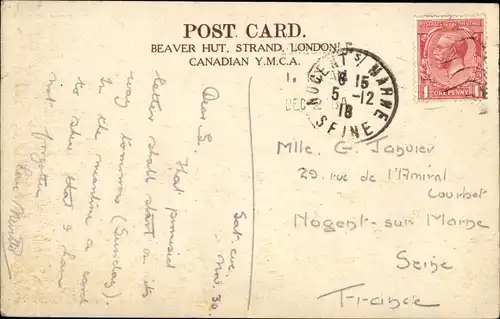 POST CARD.
BEAVER HUT, STRAND, LONDON
CANADIAN Y.M.C.A.
NOGENT S/ MARNE
15
5 -12
18
SEINE
DEC
ONE PENNY
Sat. eve.
Nov. 30.
Dear G.
That promised
letter shall start on its
way tomorrow (Sunday).
In the meantime a card
to show that I have
not forgotten.
Love,
Mlle. G. Janvier
29. rue de l'Amiral
Courbet
Nogent-sur Marne
Seine
France